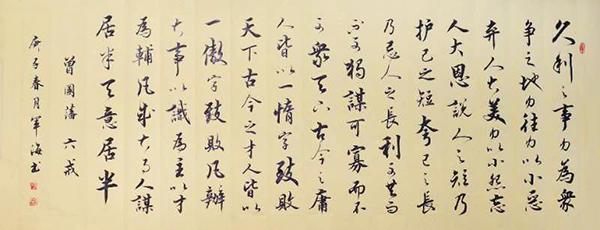 久利之事勿為衆
争之地勿往勿以小惡
弃人大美勿以小怨忘
人大恩説人之短乃
护己之短夸己之長
乃忌人之長利可共而
不可獨謀可寡而不
可衆天下古今之庸
人皆以一惰字致敗
天下古今之才人皆以
一傲字致敗凡辦
大事以識為主以才
為輔凡成大事人謀
居半天意居半
曾國藩 六戒
庚子春月軍海书